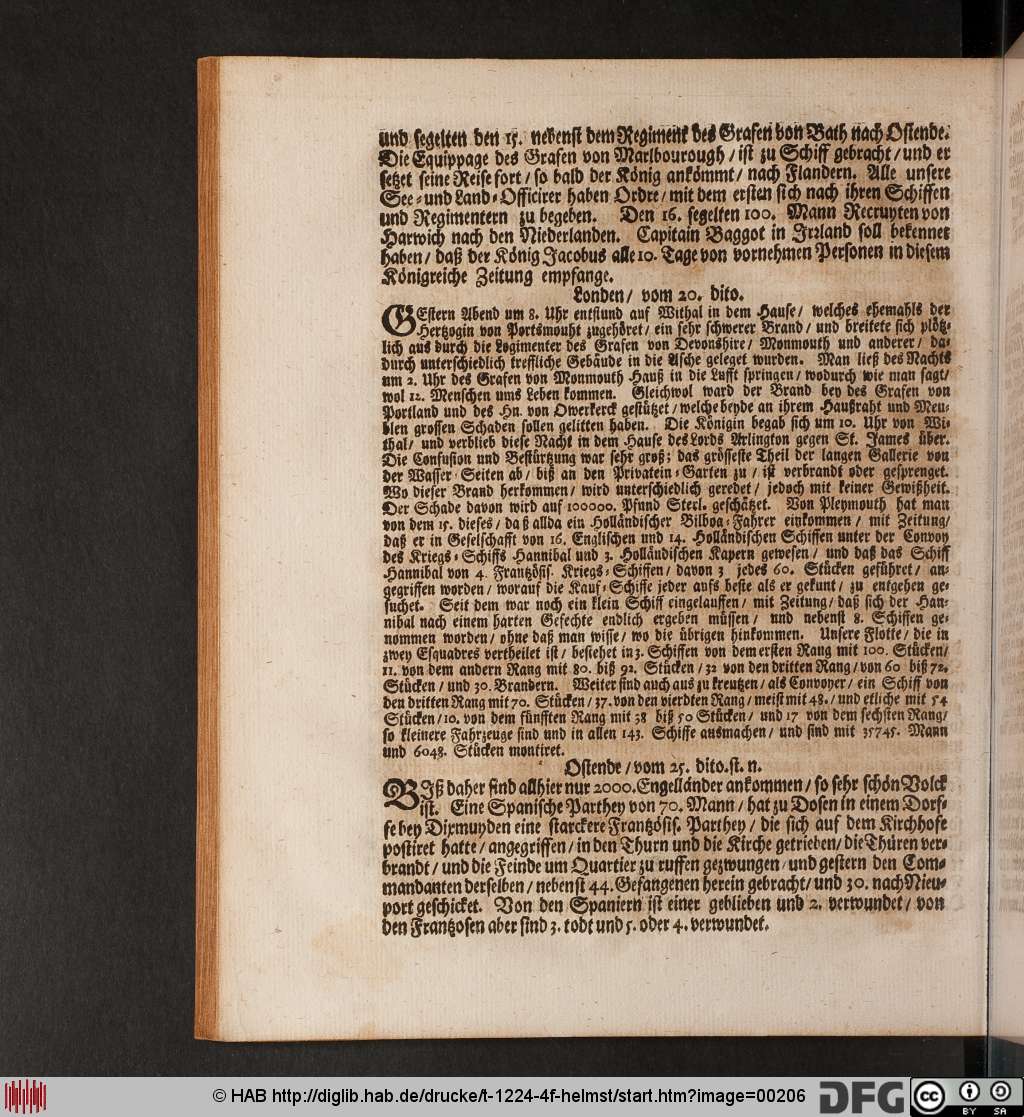 und segelten den 15. nebenst dem Regiment des Grafen von Bath nach Ostende.
Die Equippage des Grafen von Marlbourough / ist zu Schiff gebracht / und er
setzet seine Reise fort / so bald der König ankömmt / nach Flandern. Alle unsere
See- und Land-Officirer haben Ordre / mit dem ersten sich nach ihren Schiffen
und Regimentern zu begeben. Den 16. segelten 100. Mann Recruyten von
Harwich nach den Niederlanden. Capitain Baggot in Irrland soll bekennet
haben / daß der König Jacobus alle 10. Tage von vornehmen Personen in diesem
Königreiche Zeitung empfange.
Londen / vom 20. dito.
GEstern Abend um 8. Uhr entstund auf Withal in dem Hause / welches ehemahls der
Hertzogin von Portsmouht zugehöret / ein sehr schwerer Brand / und breitete sich plötz-
lich aus durch die Logimenter des Grafen von Devonshire / Monmouth und anderer / da-
durch unterschiedlich treffliche Gebäude in die Asche geleget wurden. Man ließ des Nachts
um 2. Uhr des Grafen von Monmouth Hauß in die Lufft springen / wodurch wie man sagt /
wol 12. Menschen ums Leben kommen. Gleichwol ward der Brand bey des Grafen von
Portland und des Hn. von Owerkerck gestützet / welche beyde an ihrem Haußraht und Meu-
blen grossen Schaden sollen gelitten haben. Die Königin begab sich um 10. Uhr von Wi-
thal / und verblieb diese Nacht in dem Hause des Lords Arlington gegen St. James über.
Die Confusion und Bestürtzung war sehr groß; das grösseste Theil der langen Gallerie von
der Wasser-Seiten ab / biß an den Privatein-Garten zu / ist verbrandt oder gesprenget.
Wo dieser Brand herkommen / wird unterschiedlich geredet / jedoch mit keiner Gewißheit.
Der Schade davon wird auf 100000. Pfund Sterl. geschätzet. Von Pleymouth hat man
von dem 15. dieses / daß allda ein Holländischer Bilboa-Fahrer einkommen / mit Zeitung /
daß er in Geselschafft von 16. Englischen und 14. Holländischen Schiffen unter der Convoy
des Kriegs-Schiffs Hannibal und 3. Holländischen Kapern gewesen / und daß das Schiff
Hannibal von 4. Frantzösis. Kriegs-Schiffen / davon 3 jedes 60. Stücken geführet / an-
gegriffen worden / worauf die Kauf-Schiffe jeder aufs beste als er gekunt / zu entgehen ge-
suchet. Seit dem war noch ein klein Schiff eingelauffen / mit Zeitung / daß sich der Han-
nibal nach einem harten Gefechte endlich ergeben müssen / und nebenst 8. Schiffen ge-
nommen worden / ohne daß man wisse / wo die übrigen hinkommen. Unsere Flotte / die in
zwey Esquadres vertheilet ist / bestehet in 3. Schiffen von dem ersten Rang mit 100. Stücken /
11. von dem andern Rang mit 80. biß 92. Stücken / 32 von den dritten Rang / von 60 biß 72.
Stücken / und 30. Brandern. Weiter sind auch aus zu kreutzen / als Convoyer / ein Schiff von
den dritten Rang mit 70. Stücken / 37. von den vierdten Rang / meist mit 48. / und etliche mit 54
Stücken / 10. von dem fünfften Rang mit 38 biß 50 Stücken / und 17 von dem sechsten Rang /
so kleinere Fahrzeuge sind und in allen 143. Schiffe ausmachen / und sind mit 35745. Mann
und 6048. Stücken montiret.
Ostende / vom 25. dito. st. n.
BIß daher sind allhier nur 2000. Engelländer ankommen / so sehr schön Volck
ist. Eine Spanische Parthey von 70. Mann / hat zu Dosen in einem Dorf-
fe bey Dixmuyden eine starckere Frantzösis. Parthey / die sich auf dem Kirchhofe
postiret hatte / angegriffen / in den Thurn und die Kirche getrieben / die Thüren ver-
brandt / und die Feinde um Quartier zu ruffen gezwungen / und gestern den Com-
mandanten derselben / nebenst 44. Gefangenen herein gebracht / und 30. nach Nieu-
port geschicket. Von den Spaniern ist einer geblieben und 2. verwundet / von
den Frantzosen aber sind 3. todt und 5. oder 4. verwundet.
© HAB http://diglib.hab.de/drucke/t-1224-4f-helmst/start.htm?image=00206
DFG
cc BY SA